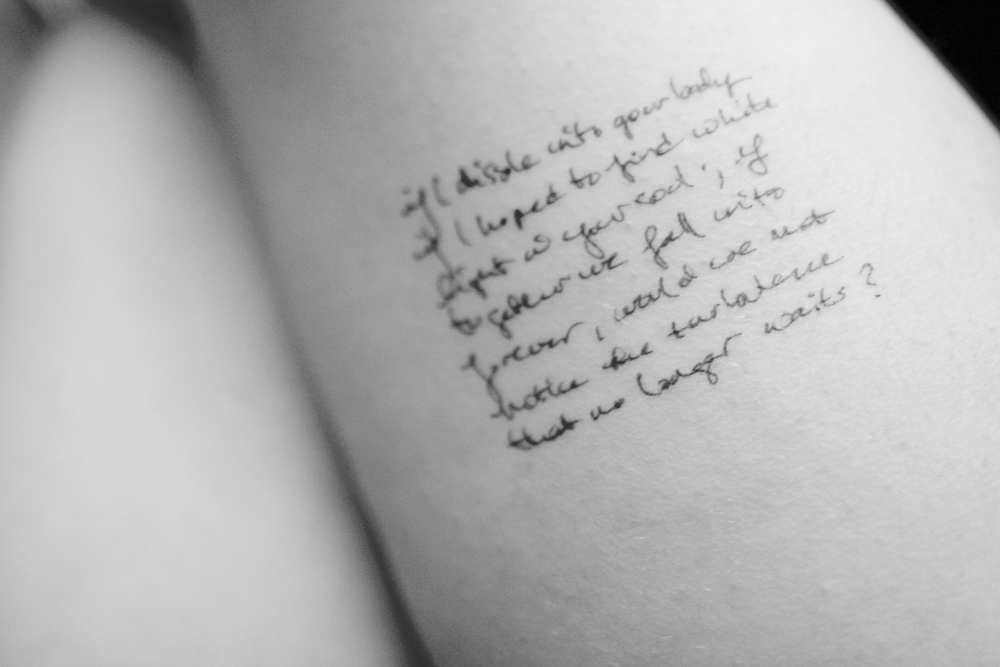 if I dissole into your body
if I hoped to find white
light in your soul ; if
together we fall into
forever , would we not
notice the turbulence
that no longer waits ?